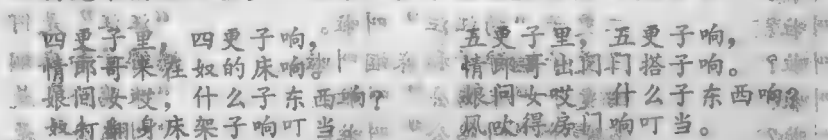 四更子里，四更子响，
情郎哥来在奴的床响。
娘问女哎，什么子东西响？
奴打翻身床架子响叮当。
五更子里，五更子响，
情郎哥出门门搭子响。
娘问女哎，什么子东西响？
风吹得房门响叮当。